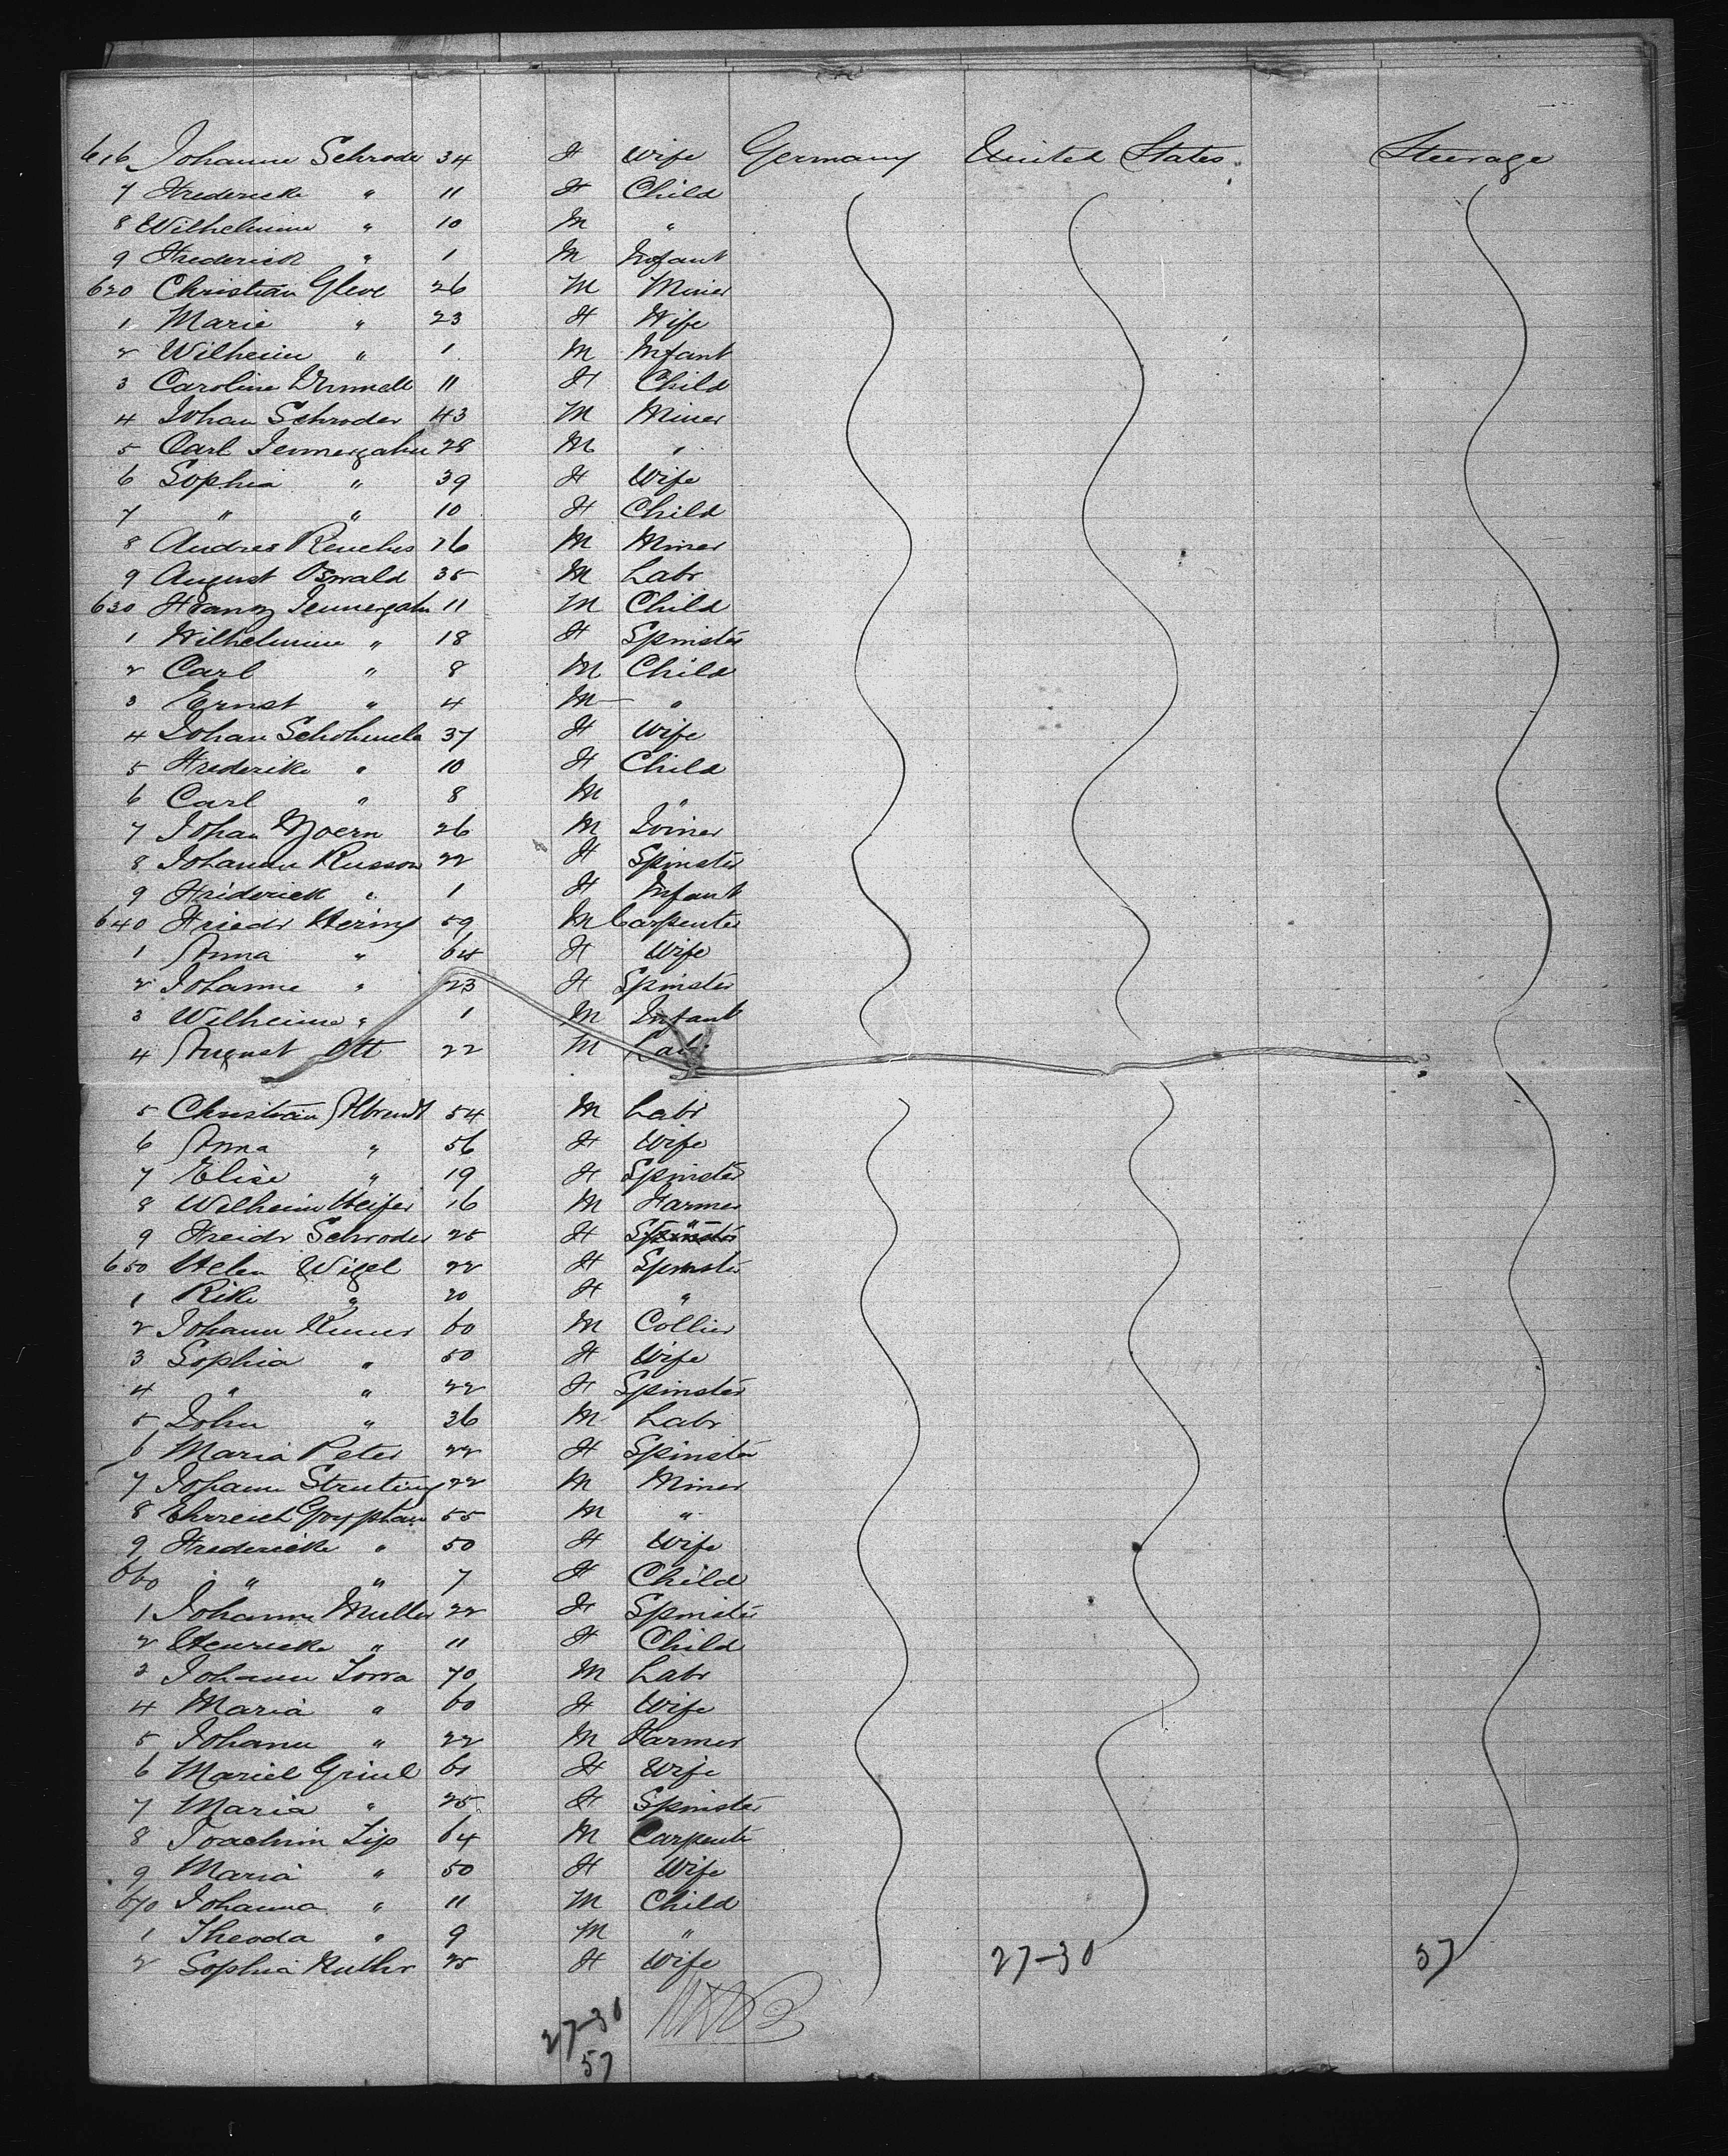 616 Johanne Schroder 34 F Wife Germany United States Steerage
7 Frederick " 11 F Child
8 Wilhelmine " 10 M "
9 Frederick " 1 M Infant
620 Christian Gleve 26 M Miner
1 Marie " 23 F Wife
2 Wilheim " 1 M Infant
3 Caroline 11 F Child
4 Johan Schroder 43 M Miner
5 Carl Jennergahn 28 M "
6 Sophia " 39 F Wife
7 " " 10 F Child
8 Andres 26 M Miner
9 August Oswald 35 M Labr
630 Franz Jennergahn 11 M Child
1 Wilhelmine " 18 F Spinster
2 Carl " 8 M Child
3 Ernst " 4 M "
4 Johan 37 F Wife
5 Frederike " 10 F Child
6 Carl " 8 M "
7 Johan 26 M Joiner
8 Johanne Russow 22 F Spinster
9 Friderick " 1 F Infant
640 Friedr Hering 59 M Carpenter
1 Anna " 64 F Wife
2 Johanne " 23 F Spinster
3 Wilheim " 1 M Infant
4 August Ott 22 M Labr
5 Christian Albrendt 54 M Labr
6 Anna " 56 F Wife
7 Elise " 19 F Spinster
8 Wilheim Heifer 16 M Farmer
9 Freidr Schroder 25 F Spinster
650 Helen Wigel 22 F Spinster
1 Rike " 20 F "
2 Johann 60 M Collier
3 Sophia " 50 F Wife
4 " " 22 F Spinster
5 John " 36 M Labr
6 Maria Peter 22 F Spinster
7 Johann Struting 22 M Miner
8 55 M "
9 Frederick " 50 F Wife
660 " " 7 F Child
1 Johanne Muller 22 F Spinster
2 Henricke " 11 F Child
3 Johann Zorra 70 M Labr
4 Maria " 60 F Wife
5 Johann " 22 M Farmer
6 Mariel Griul 61 F Wife
7 Maria " 25 F Spinster
8 Joachim Zip 64 M Carpenter
9 Maria " 50 F Wife
670 Johanna " 11 M Child
1 Theoda " 9 M "
2 Sophia 25 F Wife
27-30 57
27-30
57